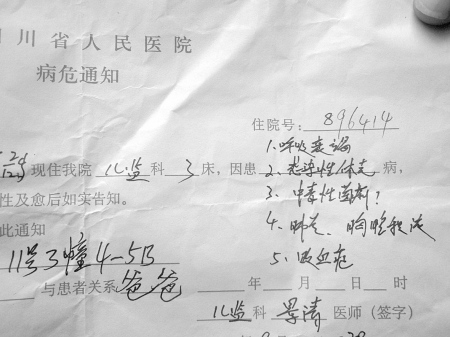 川省人民医院
病危通知
住院号：896414
现住我院儿监科3床，因患
1.呼吸衰竭
2.感染性休克病，
3.中毒性菌痢？
4.肺炎、胸腔积液
5.败血症
性及愈后如实告知。
此通知
11号3幢4-5B
与患者关系爸爸
年 月 日 时
儿监科 医师（签字）